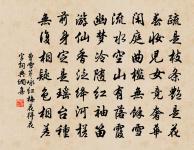 疏是枝條艷是花
春妝兒女競奢華
閑庭曲檻無餘雪
流水空山有落霞
幽夢冷隨紅袖笛
游仙香泛絳河槎
前身定是瑤台種
無復相疑色相差
曹雪芹詠紅梅花得花
字詞典網集